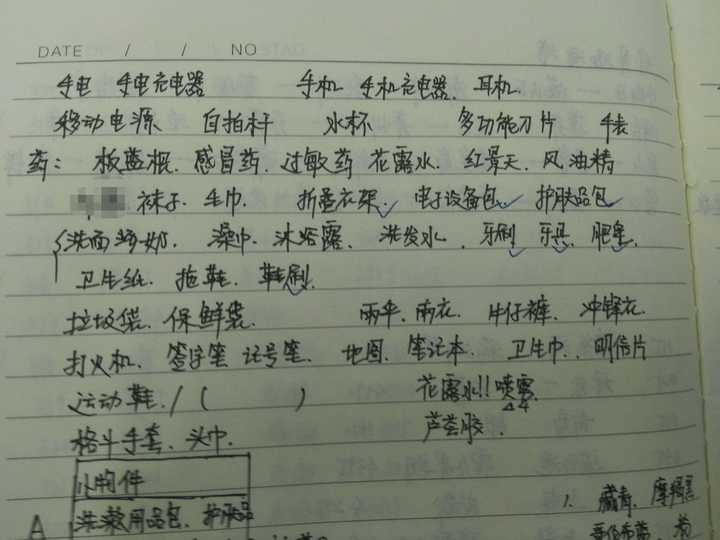 DATE / / NO
手电 手电充电器 手机 手机充电器、耳机
移动电源 自拍杆 水杯 多功能刀片 手表
药: 板蓝根、感冒药、过敏药 花露水、红景天、风油精
袜子、毛巾、折叠衣架、电子设备包、护肤品包
洗面奶、澡巾、沐浴露、洗发水、牙刷、牙具、肥皂、
卫生纸、拖鞋、鞋刷
垃圾袋、保鲜袋、雨伞、雨衣、牛仔裤、冲锋衣
打火机、签字笔 记号笔、地图、笔记本、卫生巾、明信片
运动鞋 / ( ) 花露水!! 喷雾
格斗手套、头巾、芦荟胶、
小物件
A 洗漱用品包、护肤品
1. 藏青、摩羯